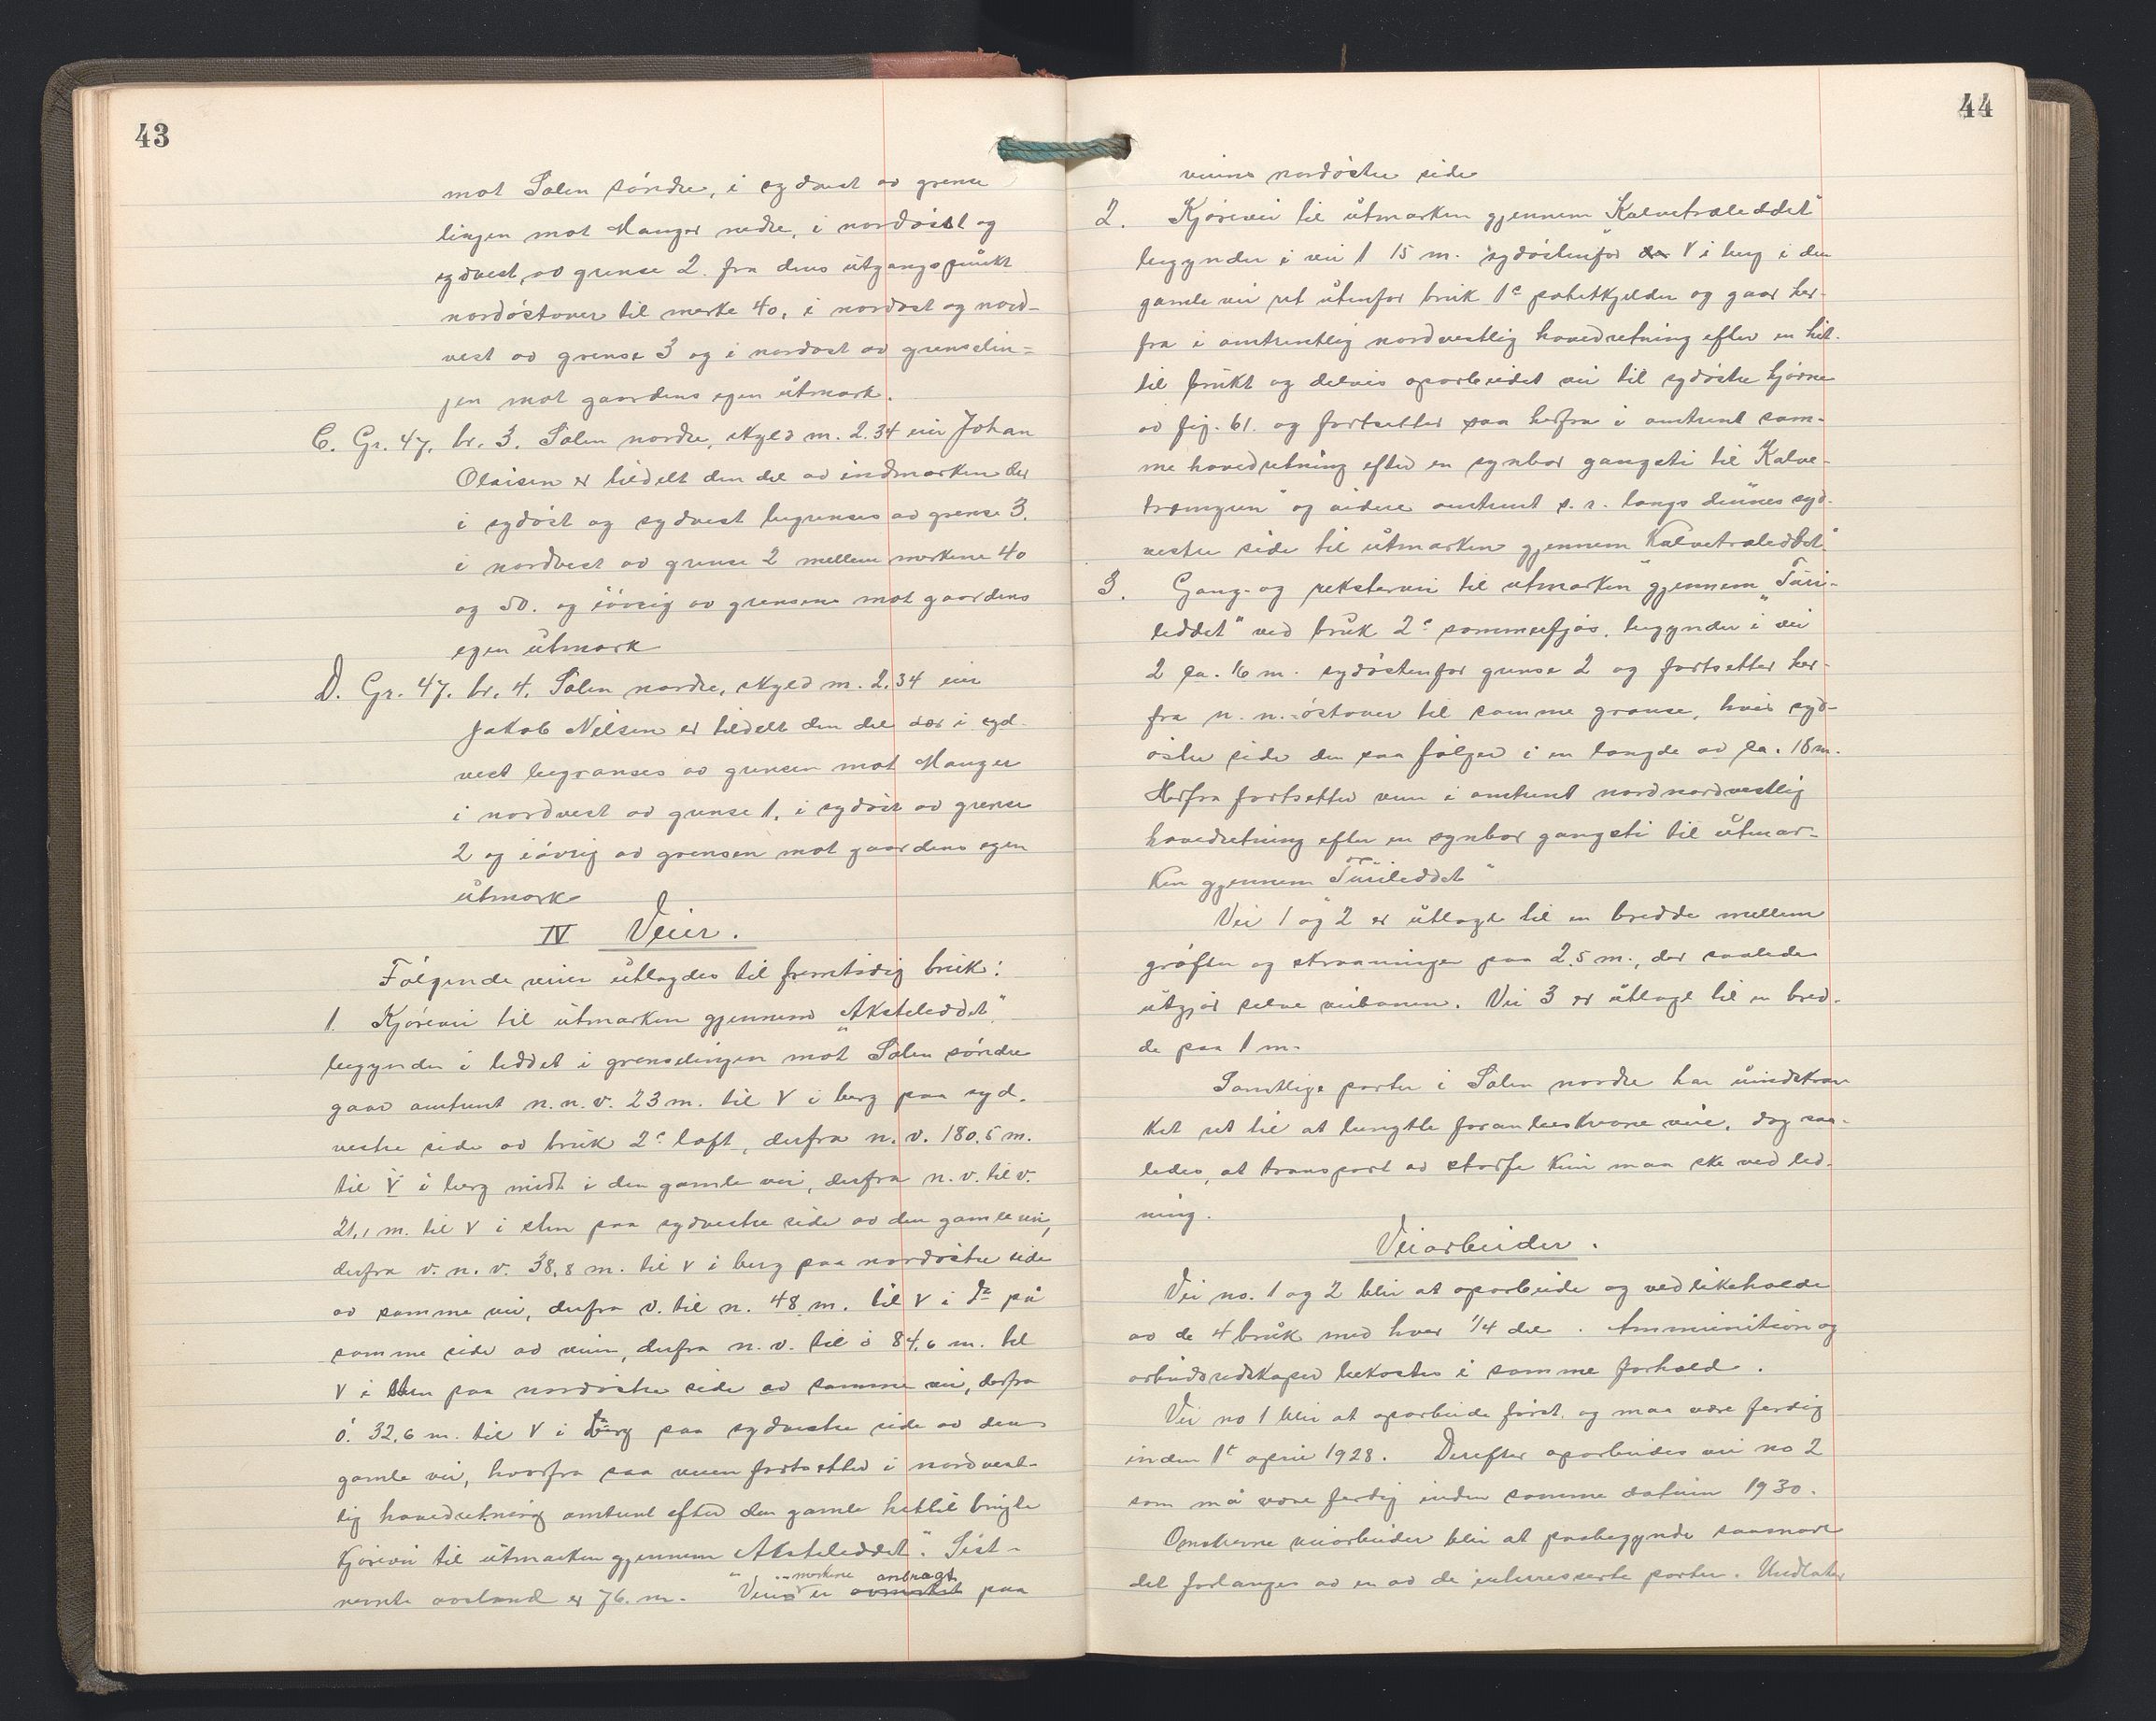 43
mot Sålen söndre, i sydvest av grense
linjen mot Manger nedre, i nordöst og
sydvest av grense 2. fra dens utgangspunkt
nordöstover til merke 40, i nordost og nord-
vest av grense 3 og i nordost av grenselin-
jen mot gaardens egen utmark.
C. Gr. 47, br. 3. Sålen nordre, skyld m. 2.34 eier Johan
Olaisen er tildelt den del av indmarken der
i sydöst og sydvest begrenses av grense 3.
i nordvest av grense 2 mellem merkene 40
og 50. og iövrig av grensene mot gaardens
egen utmark
D. Gr. 47. br. 4. Sålen nordre, skyld m. 2.34 eier
Jakob Nilsen er tildelt den del der i syd-
vest begranses av grensen mot Manger
i nordvest av grense 1, i sydöst av grense
2 og iövrig av grensen mot gaardens egen
utmark
IV Veier.
Fölgende veier utlagdes til fremtidig bruk:
1. Kjörevei til utmarken gjennem „Aksteleddet“
begynder i leddet i grenselinjen mot Sålen söndre
gaar omtrent n. n. v. 23 m. til V i berg paa syd-
vestre side av bruk 2s loft, derfra n. v. 180,5 m.
til V i berg midt i den gamle vei, derfra n. v. til v.
21,1 m. til V i sten paa sydvestre side av den gamle vei,
derfra v. n. v. 38,8 m. til V i berg paa nordöstre side
av samme vei, derfra v. til n. 48 m. til V i do på
samme side av veien, derfra n. v. til ö 84,6 m. til
V i sten paa nordöstre side av samme vei, derfra
ö. 32,6 m. til V i berg paa sydvestre side av den
gamle vei, hvorfra saa veien fortsetter i nordvest-
lig hovedretning omtrent efter den gamle hittil brugte
Kjörevei til utmarken gjennem „Aksteleddet“. Sist-
merkene anbragt
nevnte avstand er 76. m. Veiens er avmerket paa
44
veiens nordöstre side
2. Kjörevei til utmarken gjennem „Kalvetraleddet“
begynder i vei 1 15 m. sydöstenfor V i berg i den
gamle vei ret utenfor bruk 1s potetkjelder og gaar her-
fra i omtrentlig nordvestlig hovedretning efter en hit-
til brukt og delvis oparbeidet vei til sydöstre hjörne
av fig. 61. og fortsetter saa herfra i omtrent sam-
me hovedretning efter en synbar gangsti til „Kalve-
og videre omtrent s. r. langs dennes syd-
vestre side til utmarken gjennem „Kalvetraleddet“.
3. Gang- og rekstervei til utmarken gjennem „Turi-
leddet“ ved bruk 2s sommerfjøs, begynder i vei
2 ca. 16 m. sydöstenfor grense 2 og fortsetter her-
fra n. n. östover til samme grense, hvis syd-
östre side den saa fölger i en længde av ca. 18 m.
Herfra fortsetter veien i omtrent nordnordvestlig
hovedretning efter en synbar gangsti til utmar-
ken gjennem „Turileddet“
Vei 1 og 2 er utlagt til en bredde mellem
gröfter og skraaninger paa 2.5 m., der saaledes
utgjör selve veibanen. Vei 3 er utlagt til en bred-
de paa 1 m.
Samtlige parter i Sålen nordre har uindskræn-
ket ret til at benytte foranbeskrevne veie, dog saa-
ledes, at transport av storfe kun maa ske ved led-
ning.
Veiarbeider.
Vei no. 1 og 2 blir at oparbeide og vedlikeholde
av de 4 bruk med hver 1/4 del. Ammunition og
arbeidsredskaper bekostes i samme forhold.
Vei no 1 blir at oparbeide först, og maa være ferdig
inden 1st april 1928. Derefter oparbeides vei no 2
som må være ferdig inden samme datum 1930.
Omskrevne veiarbeider blir at paabegynde saasnart
det forlanges av en av de interresserte parter. Undlater